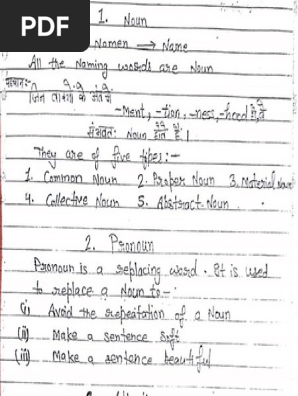 PDF
1. Noun
Nomen → Name
All the Naming words are Noun
पहचान:- जिन शब्दों के अंत में
-Ment, -tion, -ness, -hood हो वे
संभवतः Noun होते हैं।
They are of five tipes:-
1. Common Noun 2. Proper Noun 3. Material Noun
4. Collective Noun 5. Abstract Noun.
2. Pronoun
Pronoun is a replacing word. It is used
to replace a Noun to-
(i) Avoid the repeatation of a Noun
(ii) Make a sentence soft
(iii) Make a sentance beautiful